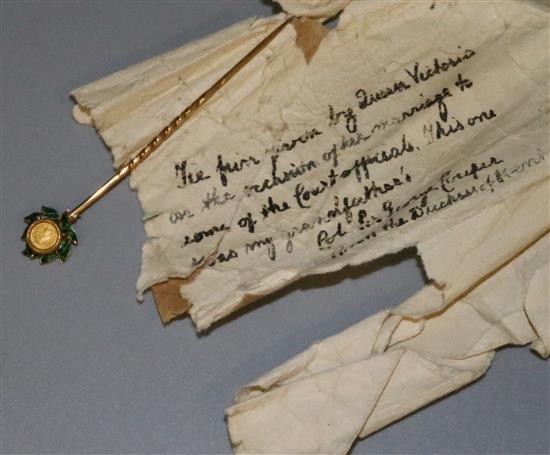 Tie pin given by Queen Victoria
on the occasion of her marriage to
some of the Court officials. This one
was my grandfather's
Col. Sir George Couper
the Duchess of Kent